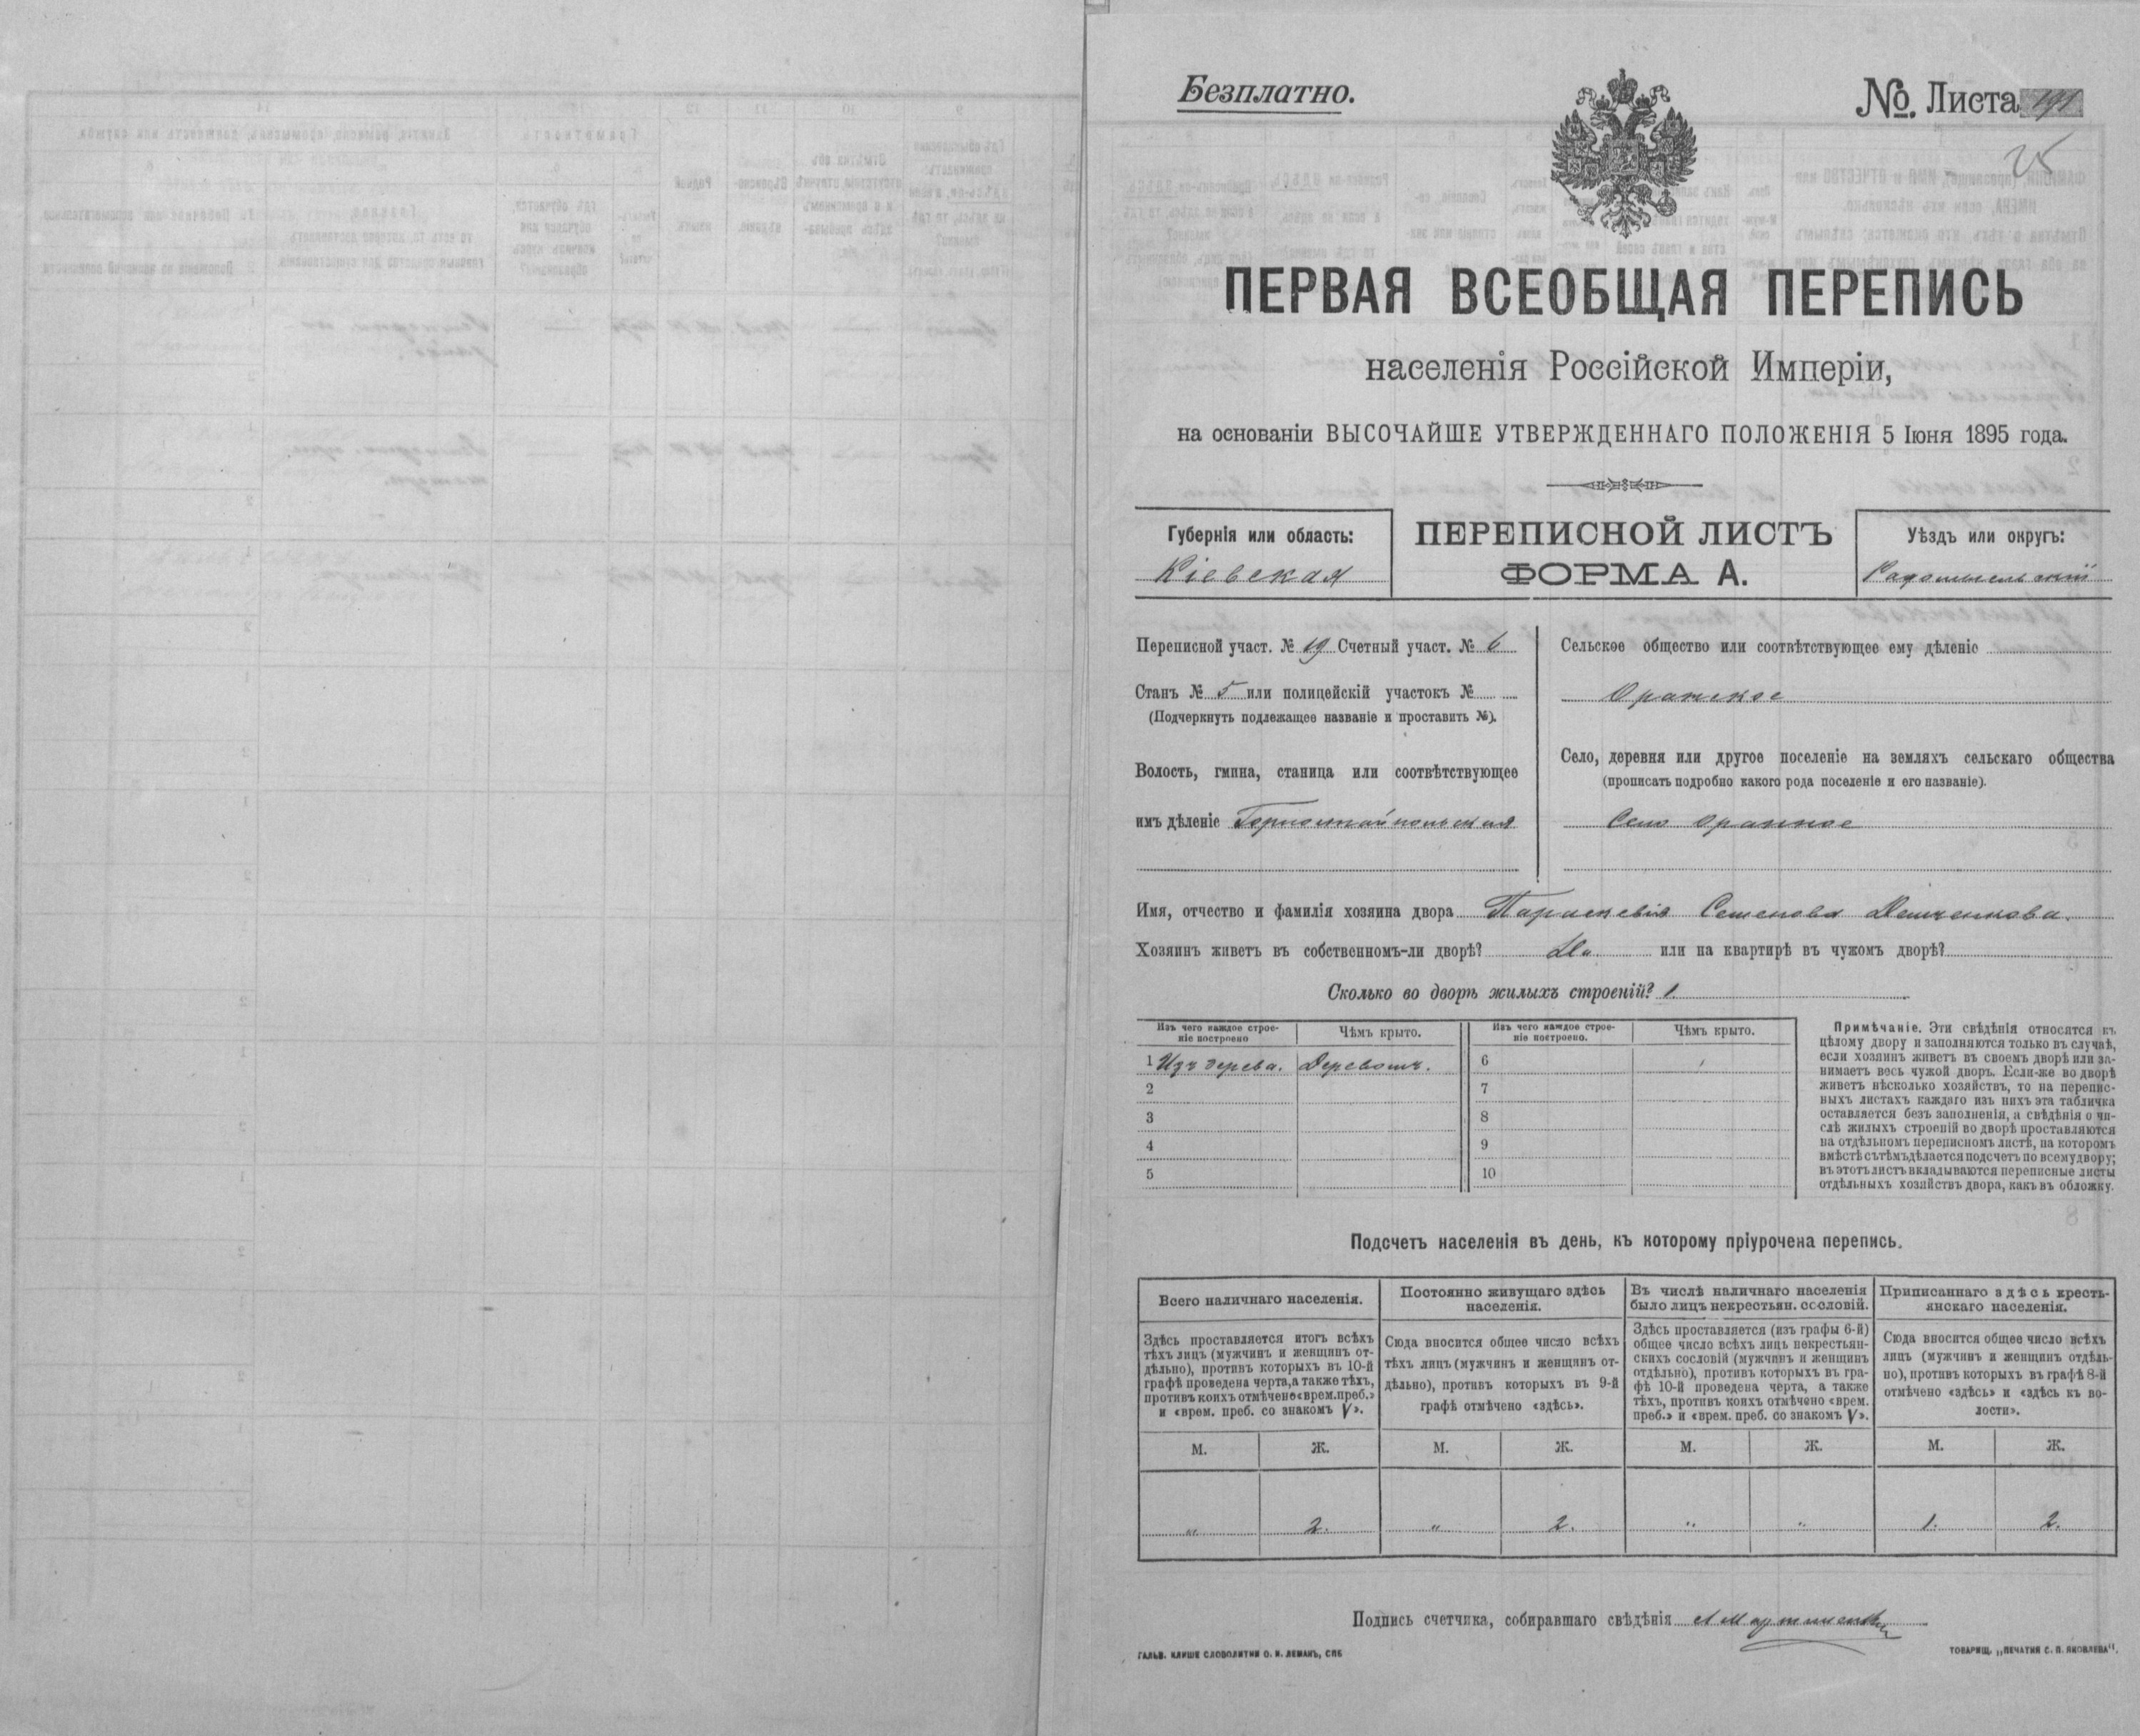 Безплатно.
№. Листа 191
25
ПЕРВАЯ ВСЕОБЩАЯ ПЕРЕПИСЬ
населенія Россійской Имперіи,
на основаніи ВЫСОЧАЙШЕ УТВЕРЖДЕННАГО ПОЛОЖЕНІЯ 5 Іюня 1895 года.
Губернія или область:
Кіевская
ПЕРЕПИСНОЙ ЛИСТЪ
ФОРМА А.
Уѣздъ или округъ:
Радомысльскій
Переписной участ. № 19 Счетный участ. № 6
Станъ № 5 или полицейскій участокъ №
(Подчеркнуть подлежащее названіе и проставить №).
Волость, гмина, станица или соотвѣтствующее
имъ дѣленіе Горностайпольская
Сельское общество или соотвѣтствующее ему дѣленіе
Оранское
Село, деревня или другое поселеніе на земляхъ сельскаго общества
(прописать подробно какого рода поселеніе и его названіе).
Село Оранное
Имя, отчество и фамилія хозяина двора Параскевія Семенова
Хозяинъ живетъ въ собственномъ-ли дворѣ? Да или на квартирѣ въ чужомъ дворѣ?
Сколько во дворѣ жилыхъ строеній? 1
Изъ чего каждое строе-
ніе построено
Чѣмъ крыто.
Изъ чего каждое строе-
ніе построено.
Чѣмъ крыто.
1 Изъ дерева. Деревомъ. 6
2 7
3 8
4 9
5 10
Примѣчаніе. Эти свѣдѣнія относятся къ
цѣлому двору и заполняются только въ случаѣ,
если хозяинъ живетъ въ своемъ дворѣ или за-
нимаетъ весь чужой дворъ. Если-же во дворѣ
живетъ нѣсколько хозяйствъ, то на перепис-
ныхъ листахъ каждаго изъ нихъ эта табличка
оставляется безъ заполненія, а свѣдѣнія о чи-
слѣ жилыхъ строеній во дворѣ проставляются
на отдѣльномъ переписномъ листѣ, на которомъ
вмѣстѣ съ тѣмъ дѣлается подсчетъ по всему двору;
въ этотъ листъ вкладываются переписные листы
отдѣльныхъ хозяйствъ двора, какъ въ обложку.
Подсчетъ населенія въ день, къ которому пріурочена перепись.
Всего наличнаго населенія.
Здѣсь проставляется итогъ всѣхъ
тѣхъ лицъ (мужчинъ и женщинъ от-
дѣльно), противъ которыхъ въ 10-й
графѣ проведена черта, а также тѣхъ,
противъ коихъ отмѣчено «врем. преб.»
и «врем. преб. со знакомъ V».
Постоянно живущаго здѣсь
населенія.
Сюда вносится общее число всѣхъ
тѣхъ лицъ (мужчинъ и женщинъ от-
дѣльно), противъ которыхъ въ 9-й
графѣ отмѣчено «здѣсь».
Въ числѣ наличнаго населенія
было лицъ некрестьян. сословій.
Здѣсь проставляется (изъ графы 6-й)
общее число всѣхъ лицъ некрестьян-
скихъ сословій (мужчинъ и женщинъ
отдѣльно), противъ которыхъ въ гра-
фѣ 10-й проведена черта, а также
тѣхъ, противъ коихъ отмѣчено «врем.
преб.» и «врем. преб. со знакомъ V».
Приписаннаго здѣсь кресть-
янскаго населенія.
Сюда вносится общее число всѣхъ
лицъ (мужчинъ и женщинъ отдѣль-
но), противъ которыхъ въ графѣ 8-й
отмѣчено «здѣсь» и «здѣсь къ во-
лости».
М. Ж. М. Ж. М. Ж. М. Ж.
" 2. " 2. " " 1. 2.
Подпись счетчика, собиравшаго свѣдѣнія
ГАЛЬВ. КЛИШЕ СЛОВОЛИТНИ О. И. ЛЕМАНЪ, СПБ
ТОВАРИЩ. „ПЕЧАТНЯ С. П. ЯКОВЛЕВА".